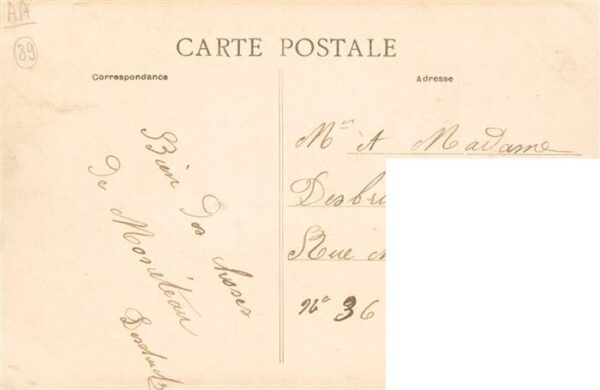 AA
89
CARTE POSTALE
Correspondance
Adresse
Bien des choses
de Monéteau
Mr et Madame
Rue
No 36